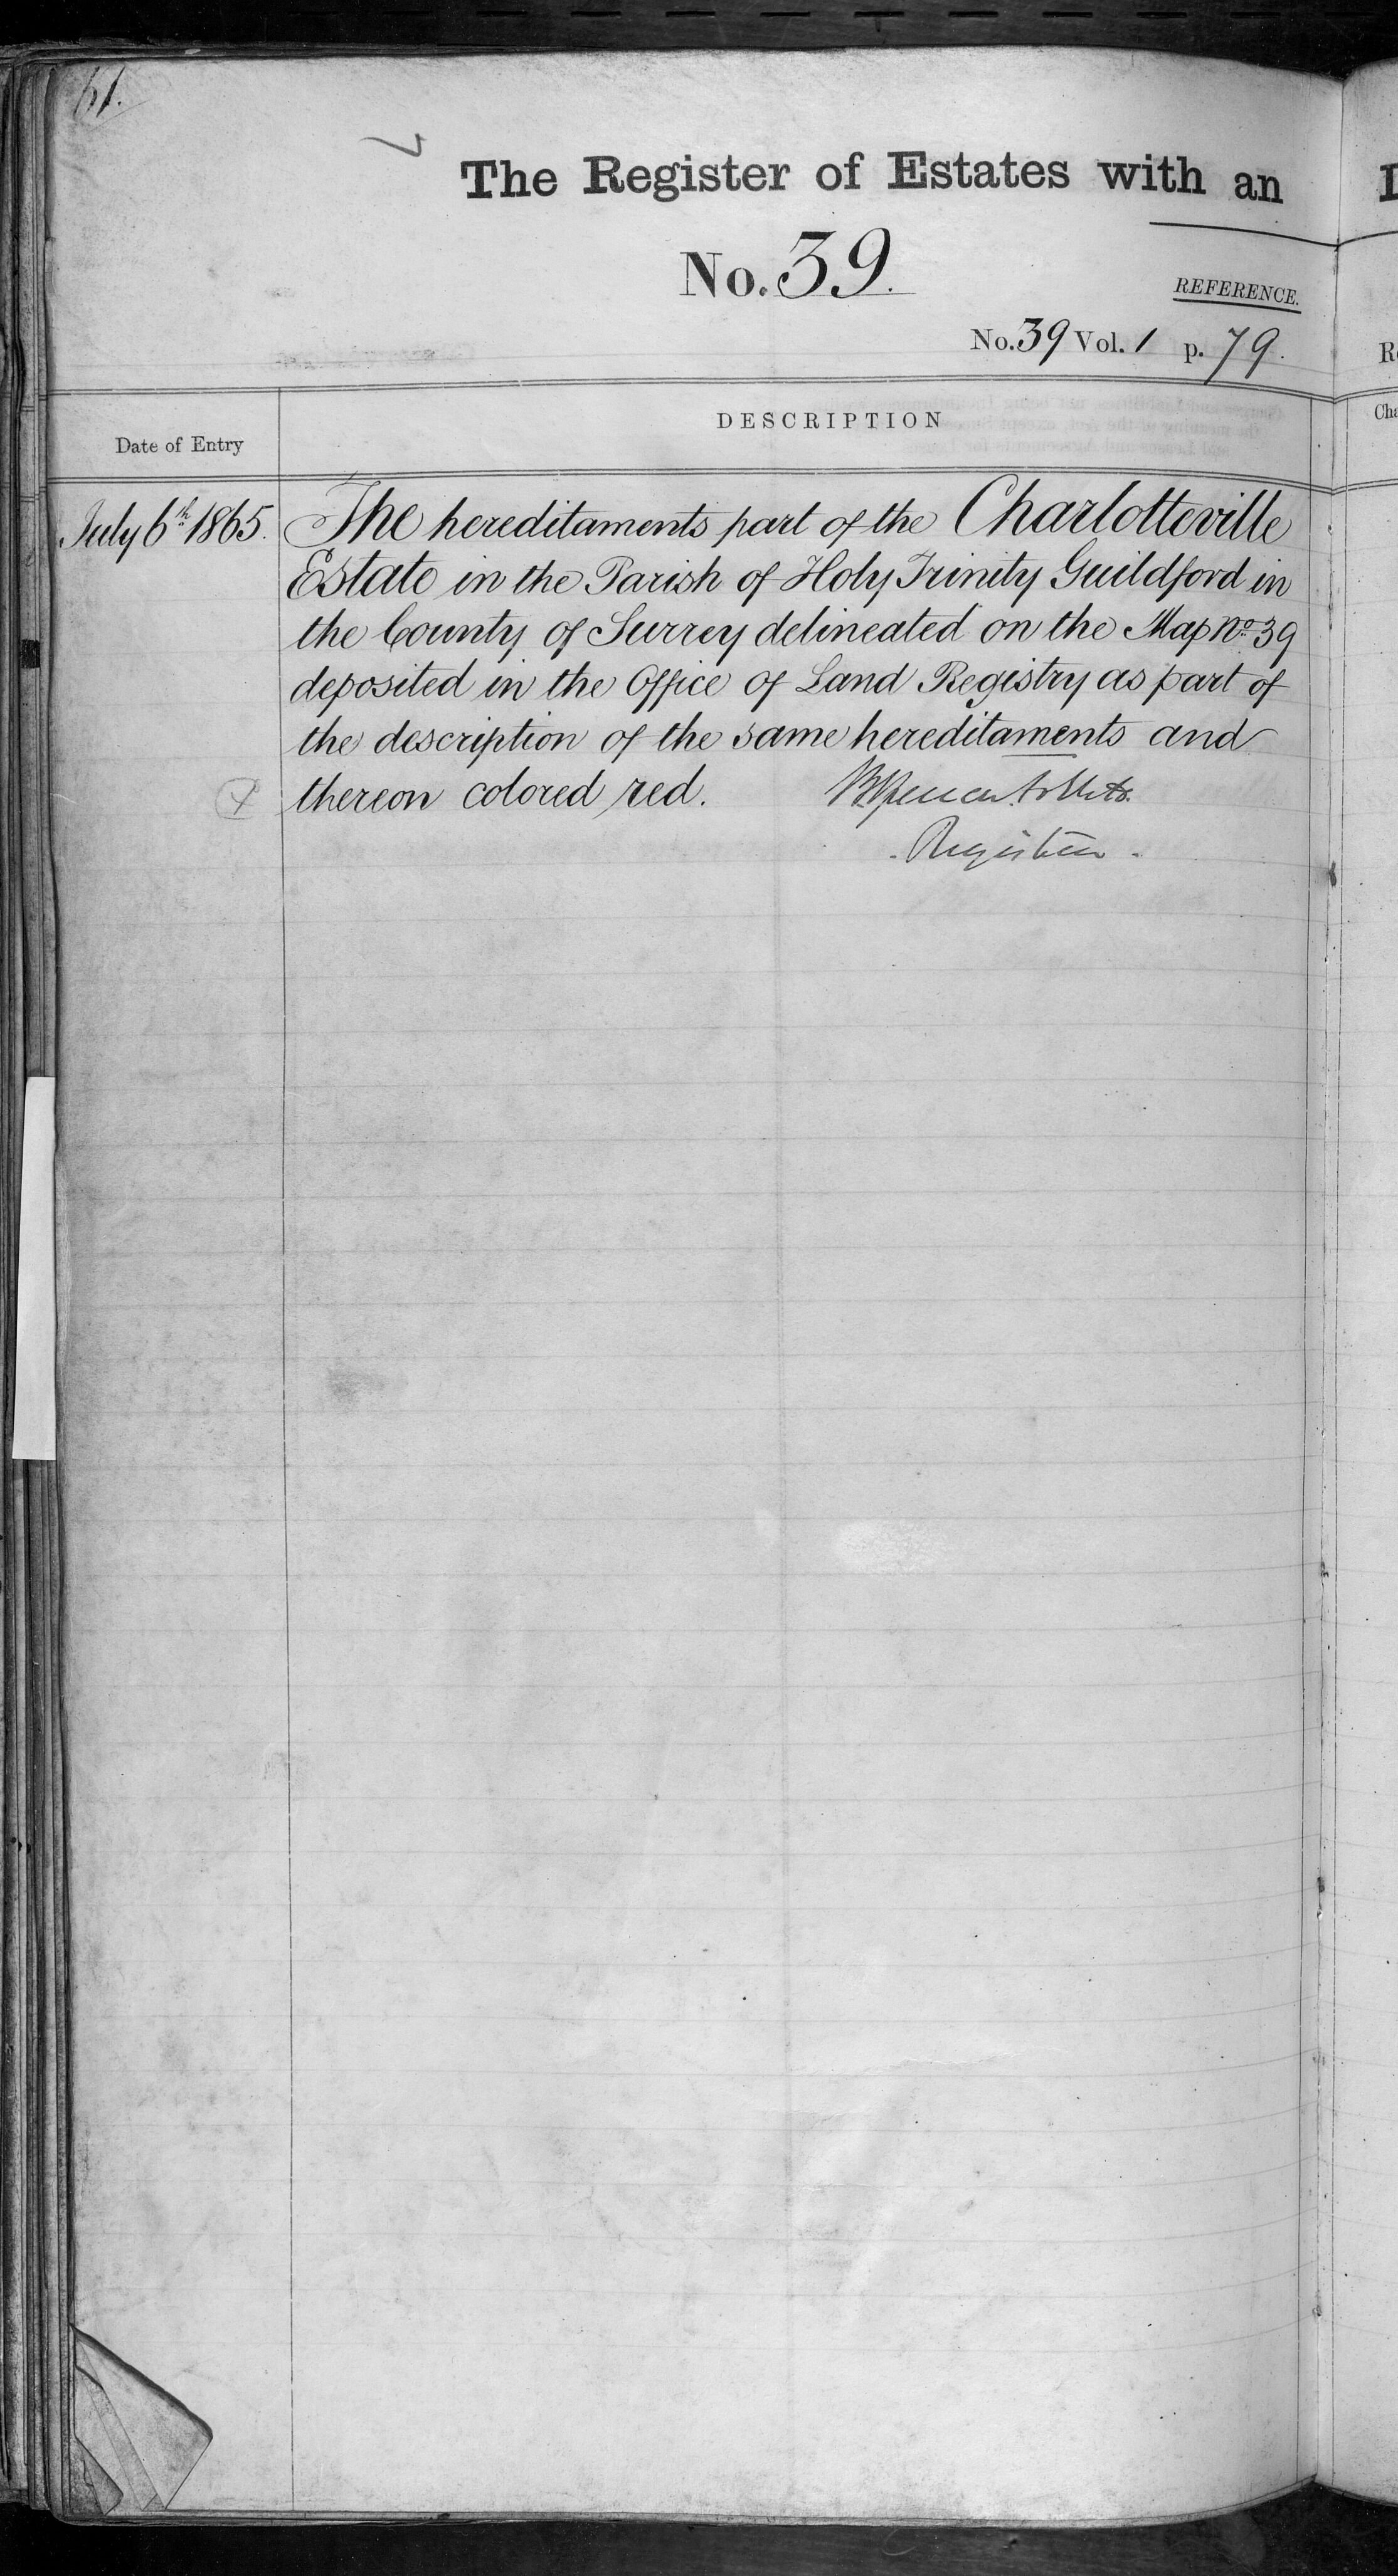 61.
7
The Register of Estates with an
No. 39.
REFERENCE.
No. 39 Vol. 1 p. 79.
Date of Entry
DESCRIPTION
July 6th 1865.
The hereditaments part of the Charlotteville
Estate in the Parish of Holy Trinity Guildford in
the County of Surrey delineated on the Map No. 39
deposited in the Office of Land Registry as part of
the description of the same hereditaments and
thereon colored red.
Registrar.